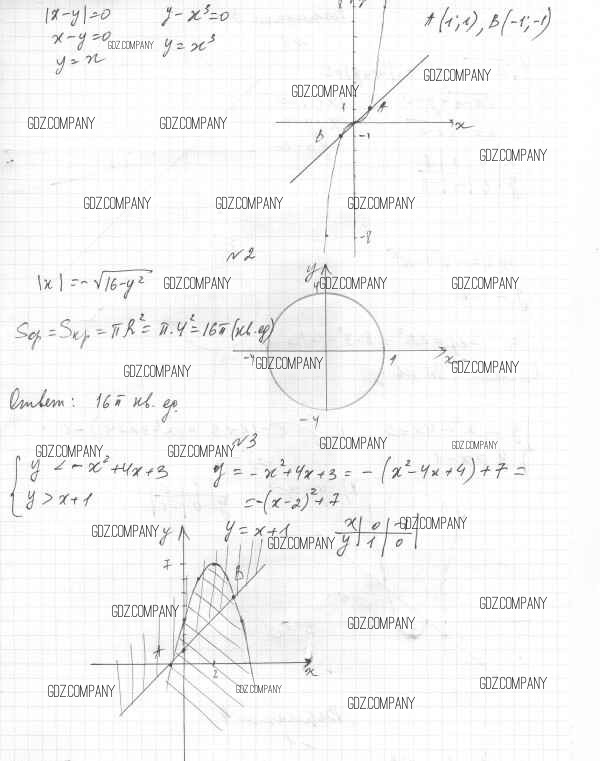 |x-y|=0 y-x³=0 A(1;1), B(-1;-1)
x-y=0 y=x³
y=x
GDZ.COMPANY
8 y
GDZ.COMPANY
GDZ.COMPANY
1 A
x
GDZ.COMPANY GDZ.COMPANY
B -1
GDZ.COMPANY
GDZ.COMPANY GDZ.COMPANY GDZ.COMPANY
-8
№2
y
4
|x|=-√16-y²
GDZ.COMPANY GDZ.COMPANY GDZ.COMPANY
Sфр=Sкр=πR²=π·4²=16π(кв.ед)
-4 4 x
GDZ.COMPANY GDZ.COMPANY
GDZ.COMPANY
Ответ: 16π кв. ед.
-4
№3
GDZ.COMPANY GDZ.COMPANY GDZ.COMPANY GDZ.COMPANY
{ y < -x²+4x+3 y=-x²+4x+3=-(x²-4x+4)+7=
y > x+1 =-(x-2)²+7
GDZ.COMPANY y y=x+1 x | 0 | -1
GDZ.COMPANY
GDZ.COMPANY y | 1 | 0
7
B
GDZ.COMPANY GDZ.COMPANY
GDZ.COMPANY
A
2 x
GDZ.COMPANY GDZ.COMPANY GDZ.COMPANY
GDZ.COMPANY